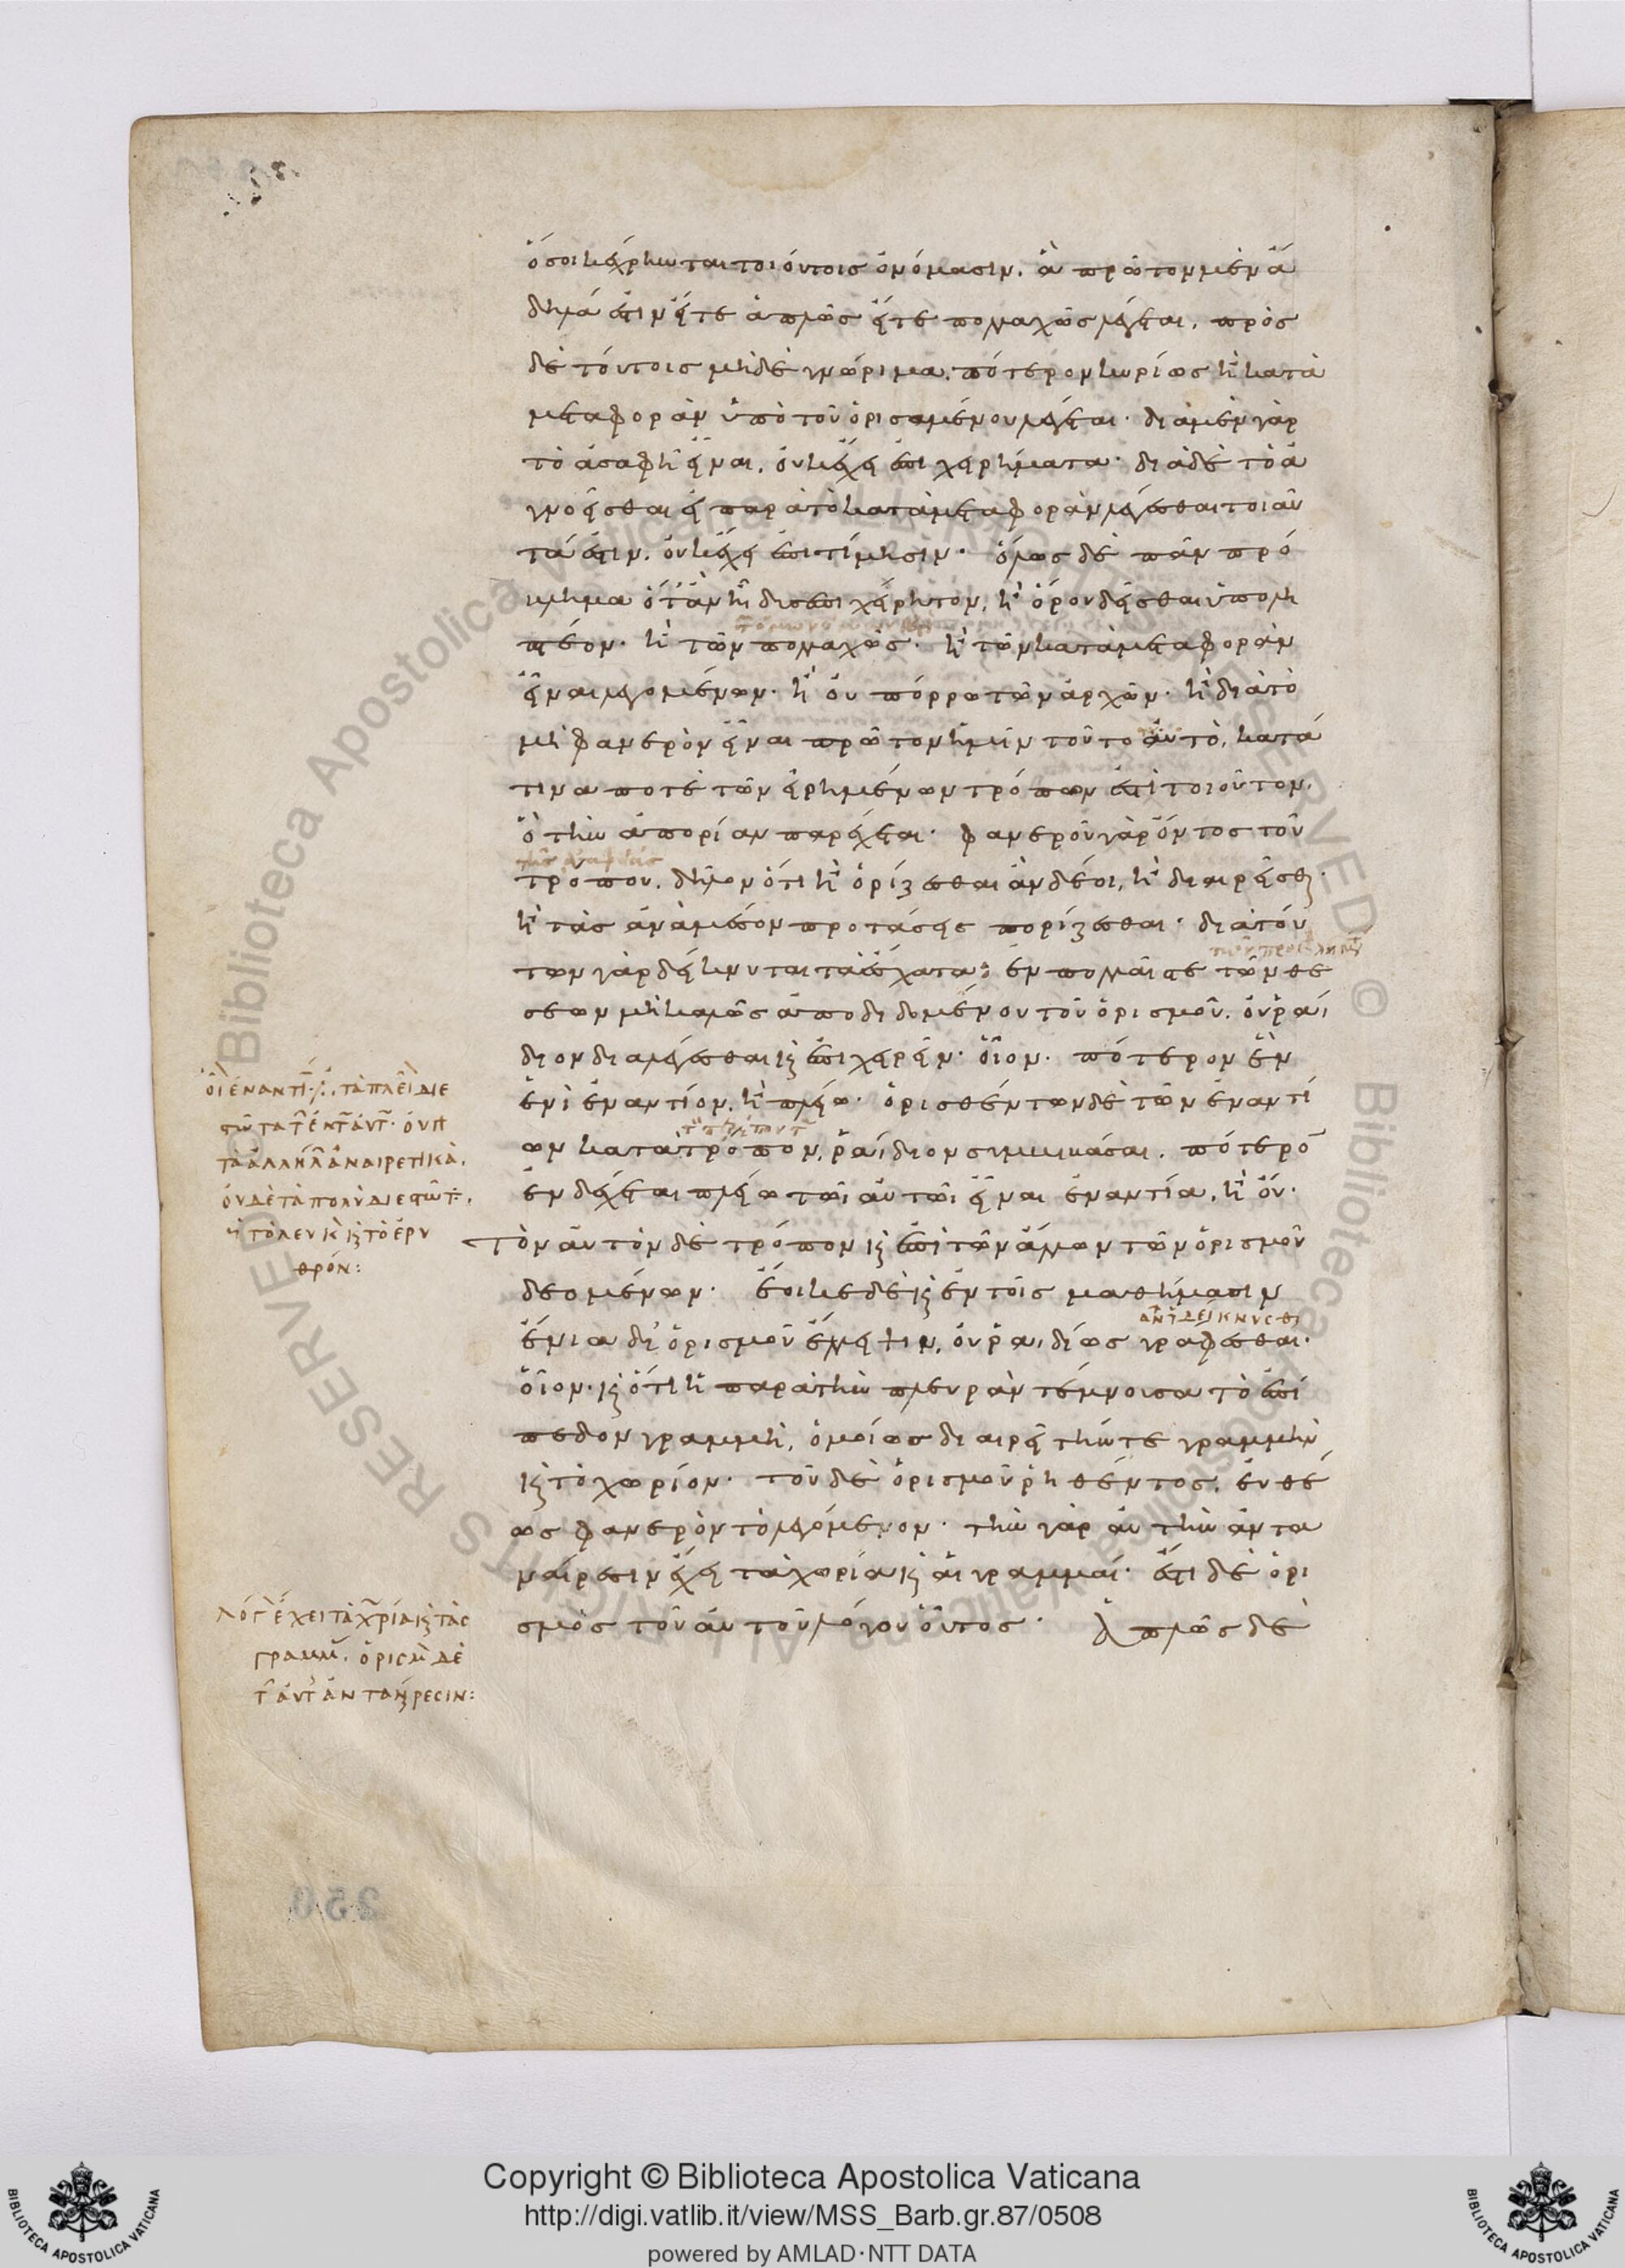 ὅσοι κέχρηνται τοιούτοις ὀνόμασιν. ἃ πρῶτον μὲν ἄ
δηλά ἐστιν εἴτε ἁπλῶς εἴτε πολλαχῶς λέγεται. πρὸς
δὲ τούτοις μηδὲ γνώριμα. πότερον κυρίως ἢ κατὰ
μεταφορὰν ὑπὸ τοῦ ὁρισαμένου λέγεται· διὰ μὲν γὰρ
τὸ ἀσαφῆ εἶναι. οὐκ ἔχει ἐπιχειρήματα· διὰ δὲ τὸ ἀ
γνοεῖσθαι εἰ παρὰ τὸ κατὰ μεταφορὰν λέγεσθαι τοιαῦ
τά ἐστιν. οὐκ ἔχει ἐπιτίμησιν· ὅλως δὲ πᾶν πρό
βλημα ὅταν ᾖ δυσεπιχείρητον, ἢ ὅρου δεῖσθαι ὑπολη
πτέον· ἢ τῶν πολλαχῶς· ἢ τῶν κατὰ μεταφορὰν
εἶναι λεγομένων· ἢ οὐ πόρρω τῶν ἀρχῶν· ἢ διὰ τὸ
μὴ φανερὸν εἶναι πρῶτον ἡμῖν τοῦτο αὐτὸ, κατά
τινα ποτὲ τῶν εἰρημένων τρόπων ἐστὶ τοιοῦτον.
ὃ τὴν ἀπορίαν παρέχεται· φανεροῦ γὰρ ὄντος τοῦ
τρόπου. δῆλον ὅτι ἢ ὁρίζεσθαι ἂν δέοι, ἢ διαιρεῖσθαι·
ἢ τὰς ἀνὰ μέσον προτάσεις πορίζεσθαι· διὰ τού
των γὰρ δείκνυται τὰ ἔσχατα: ἐν πολλαῖς τε τῶν θέ
σεων μὴ καλῶς ἀποδιδομένου τοῦ ὁρισμοῦ. οὐ ῥᾴ
διον διαλέγεσθαι καὶ ἐπιχειρεῖν· οἷον· πότερον ἓν
ἑνὶ ἐναντίον. ἢ πλείω· ὁρισθέντων δὲ τῶν ἐναντί
ων κατὰ τρόπον, ῥᾴδιον συμβιβάσαι. πότερον
ἐνδέχεται πλείω τῶι αὐτῶι εἶναι ἐναντία, ἢ οὔ·
τὸν αὐτὸν δὲ τρόπον καὶ ἐπὶ τῶν ἄλλων τῶν ὁρισμοῦ
δεομένων· ἔοικε δὲ καὶ ἐν τοῖς μαθήμασιν
ἔνια δι' ὁρισμοῦ ἔλλειψιν, οὐ ῥαιδίως γράφεσθαι·
οἷον· καὶ ὅτι ἡ παρὰ τὴν πλευρὰν τέμνουσα τὸ ἐπί
πεδον γραμμὴ, ὁμοίως διαιρεῖ τήν τε γραμμὴν
καὶ τὸ χωρίον· τοῦ δὲ ὁρισμοῦ ῥηθέντος, εὐθέ
ως φανερὸν τὸ λεγόμενον· τὴν γὰρ αὐτὴν ἀντα
ναίρεσιν ἔχει τὰ χωρία καὶ αἱ γραμμαί· ἔστι δὲ ὁρι
σμὸς τοῦ αὐτοῦ λόγου οὗτος· Ἁπλῶς δὲ
Copyright © Biblioteca Apostolica Vaticana
http://digi.vatlib.it/view/MSS_Barb.gr.87/0508
powered by AMLAD·NTT DATA
BIBLIOTECA APOSTOLICA VATICANA
BIBLIOTECA APOSTOLICA VATICANA